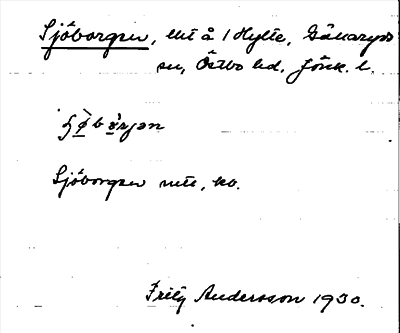 Sjöborgen, litt å 1 Hylte, Gällaryds
sn, Östbo hd. Jönk. l.
Sjöborgen neu, kb.
Fritz Andersson 1930.